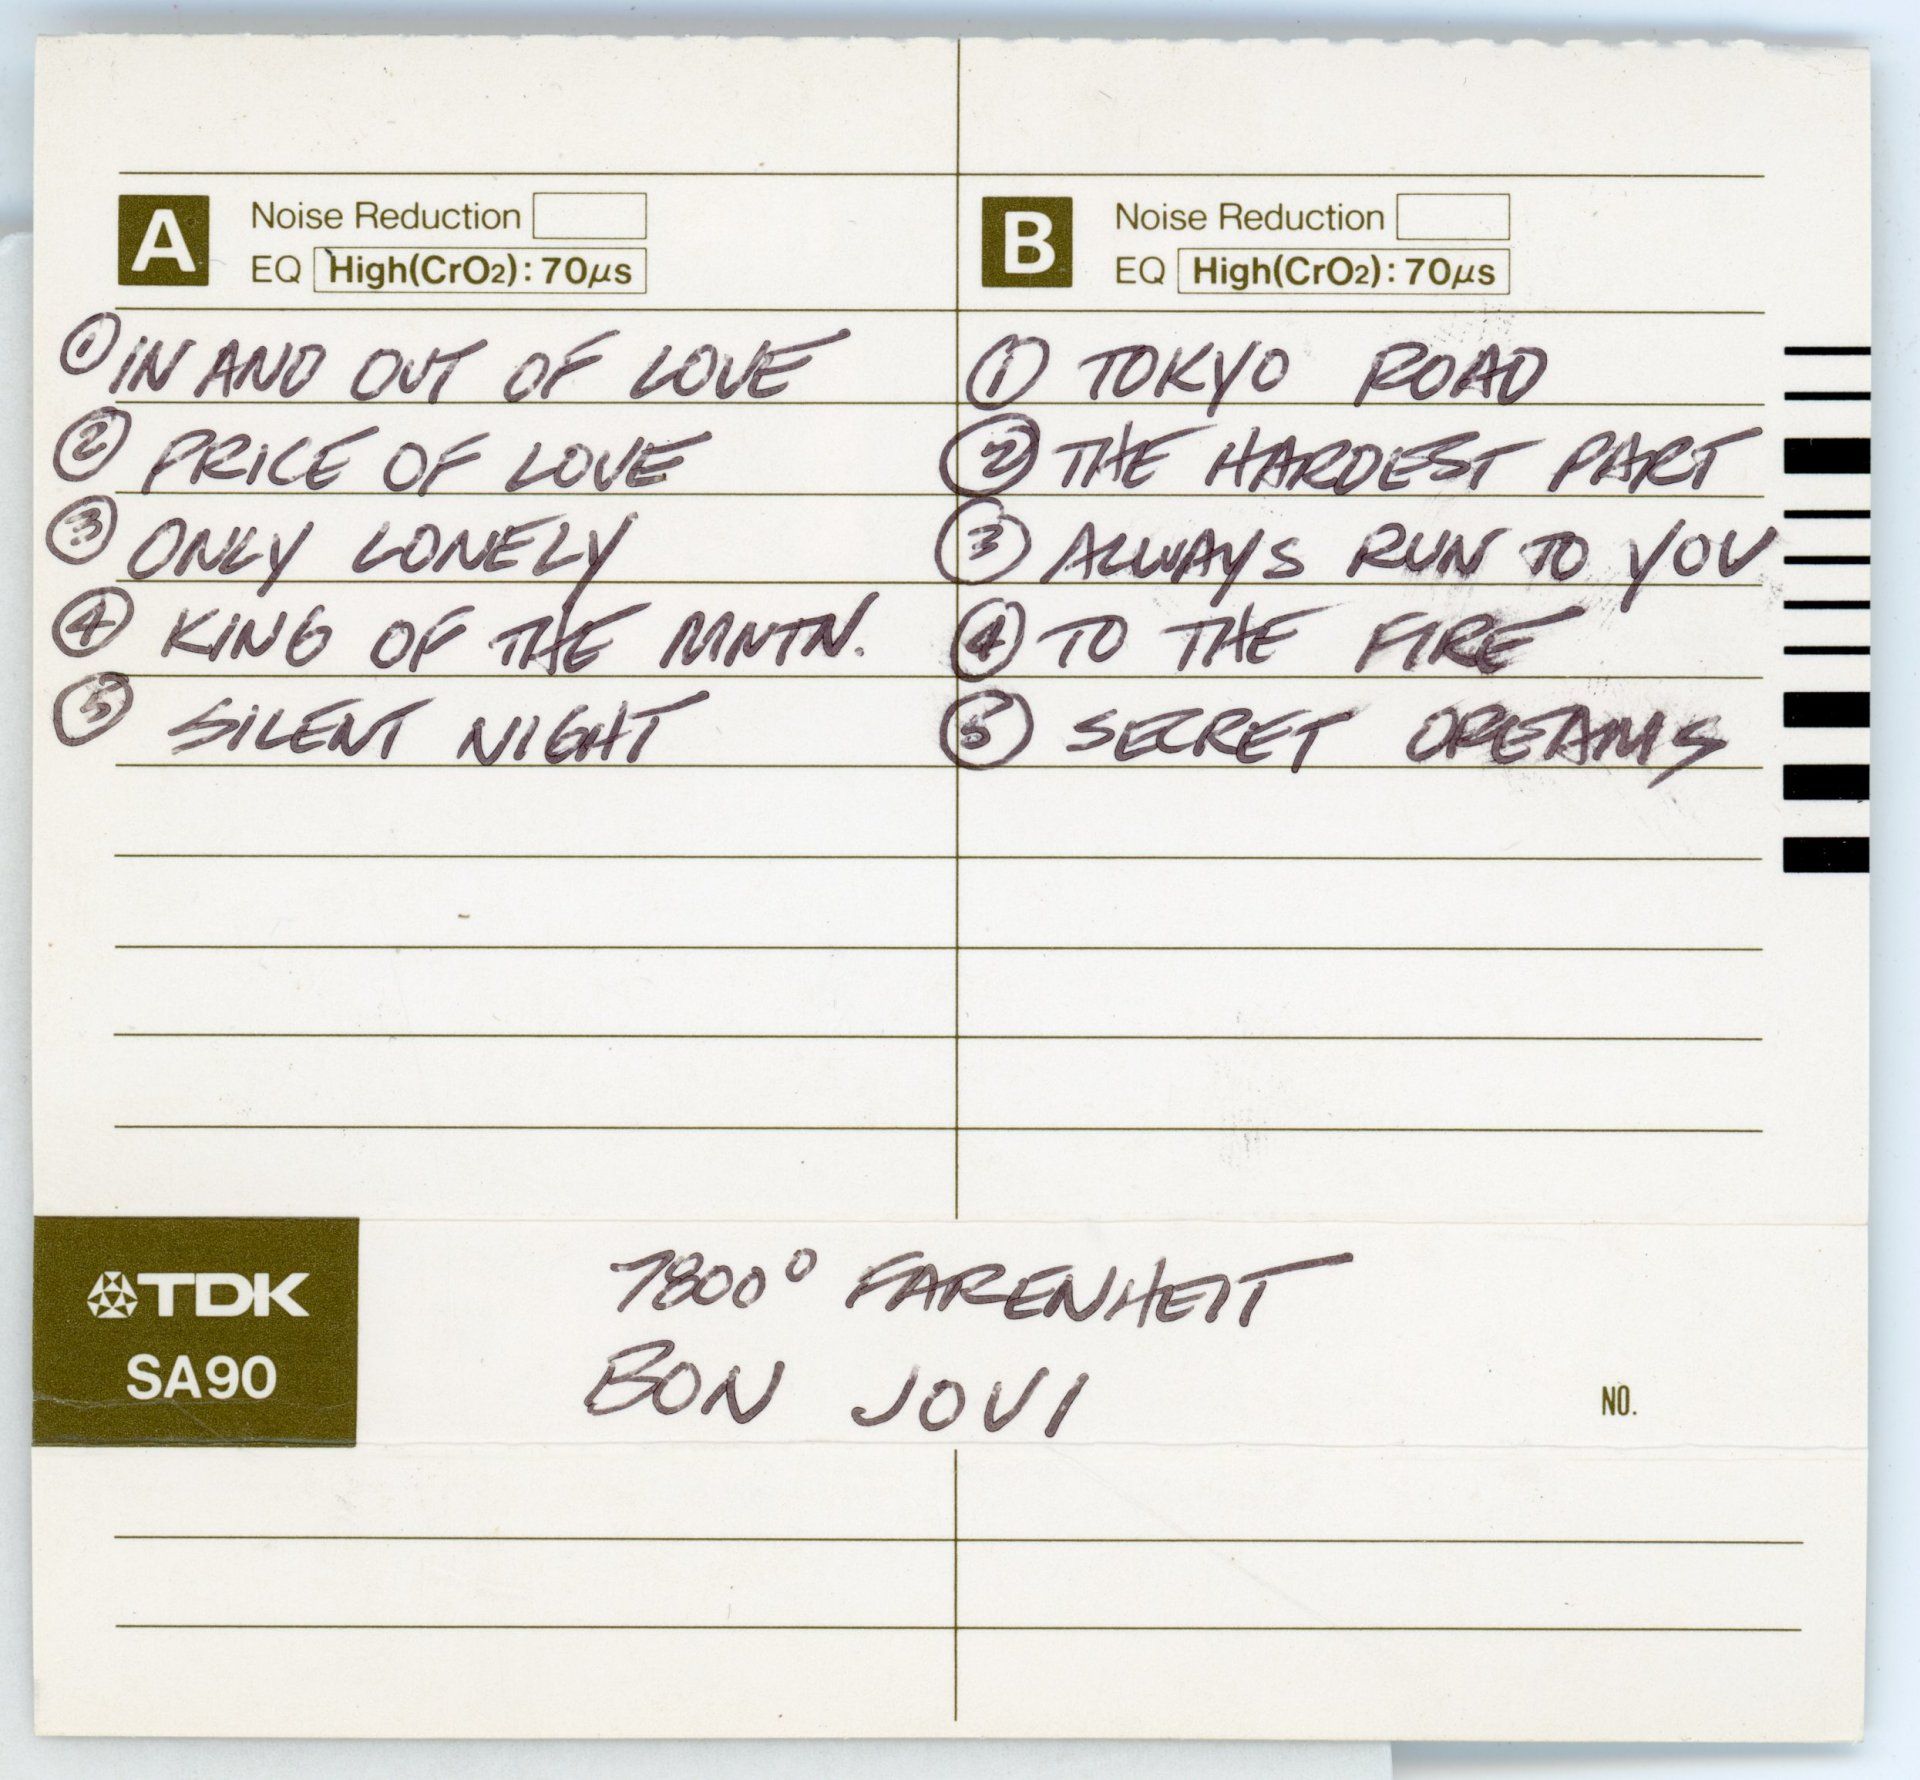 A
Noise Reduction
EQ High(CrO2): 70μs
① IN AND OUT OF LOVE
② PRICE OF LOVE
③ ONLY LONELY
④ KING OF THE MNTN.
⑤ SILENT NIGHT
B
Noise Reduction
EQ High(CrO2): 70μs
① TOKYO ROAD
② THE HARDEST PART
③ ALWAYS RUN TO YOU
④ TO THE FIRE
⑤ SECRET DREAMS
TDK
SA90
7800° FARENHEIT
BON JOVI
NO.